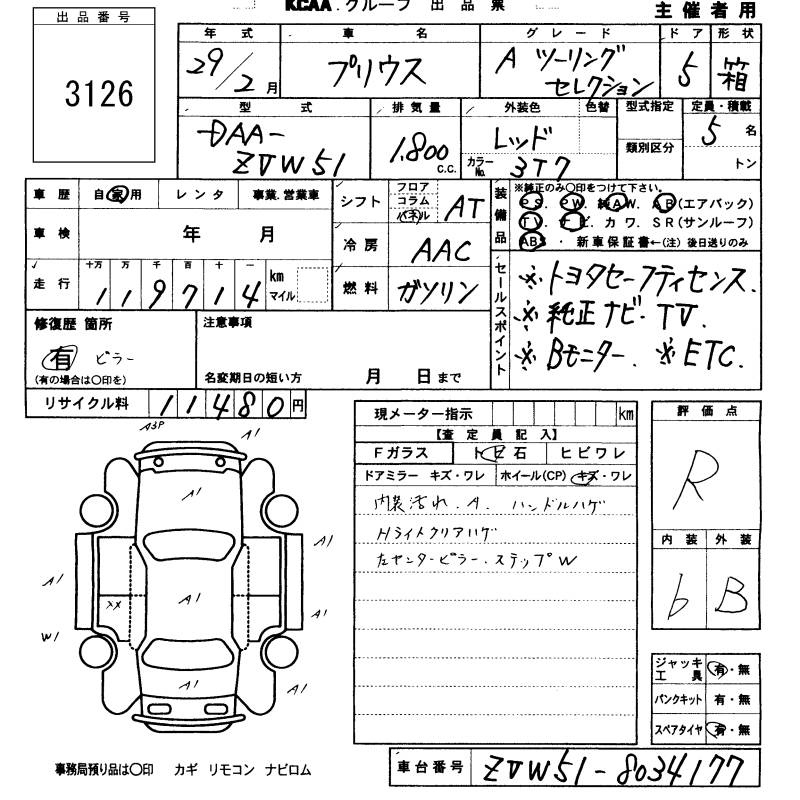 KCAA.グループ 出品票
主催者用
出品番号
3126
年式 車名 グレード ドア 形状
29/2月 プリウス A ツーリングセレクション 5 箱
型式 排気量 外装色 色替 型式指定 定員・積載
DAA-ZVW51 1,800 C.C. レッド カラーNo. 3T7 類別区分 5名 トン
車歴 自家用 レンタ 事業.営業車
車検 年 月
走行 十万 万 千 百 十 一
119714 km マイル
シフト フロア コラム パネル AT
冷房 AAC
燃料 ガソリン
装備品 ※純正のみ○印をつけて下さい。
PS. PW. 純AW. AB(エアバック)
TV. ナビ. カワ. SR(サンルーフ)
ABS・新車保証書←(注)後日送りのみ
セールスポイント
※トヨタセーフティセンス.
※純正ナビ・TV.
※Bモニター. ※ETC.
修復歴 箇所
有 ピラー
(有の場合は○印を)
注意事項
名変期日の短い方 月 日まで
リサイクル料 11480円
現メーター指示 km
【査定員記入】
Fガラス トビ石 ヒビワレ
ドアミラー キズ・ワレ ホイール(CP) キズ・ワレ
内装汚れ.A. ハンドルハゲ
Hライトクリアハゲ
左センターピラー.ステップW
評価点
R
内装 外装
b B
A3P
A1
A1
A1
A1
A1
XX
A1
W1
A1
A1
A1
ジャッキ工具 有・無
パンクキット 有・無
スペアタイヤ 有・無
事務局預り品は○印 カギ リモコン ナビロム
車台番号 ZVW51-8034177